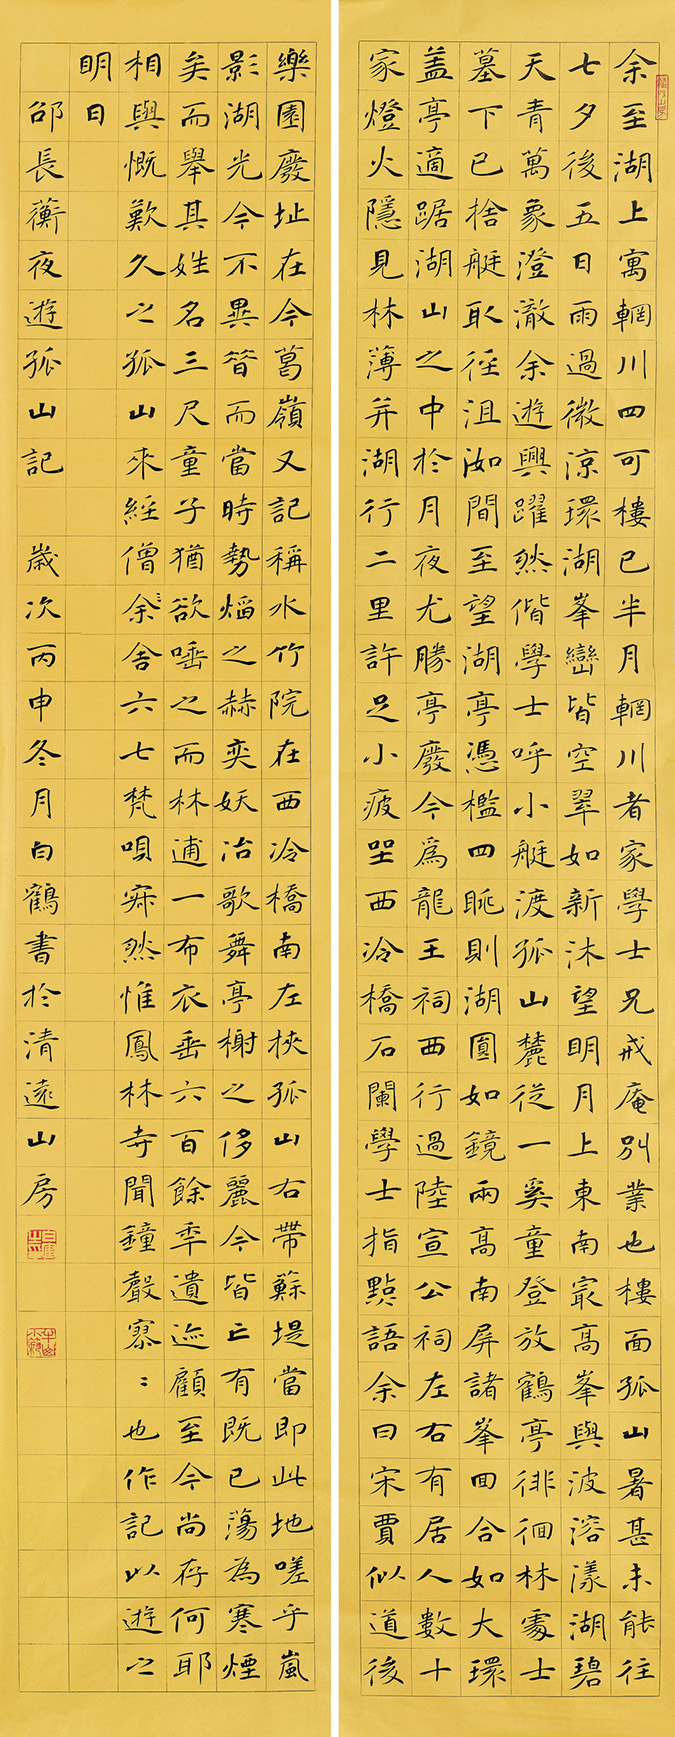 余至湖上寓輞川四可樓已半月輞川者家學士兄戒庵別業也樓面孤山暑甚未能往
七夕後五日雨過微涼環湖峯巒皆空翠如新沐望明月上東南最高峯與波溶漾湖碧
天青萬象澄澈余遊興躍然偕學士呼小艇渡孤山麓從一奚童登放鶴亭徘徊林處士
墓下已捨艇取徑沮洳間至望湖亭憑檻四眺則湖圓如鏡兩高南屏諸峯回合如大環
蓋亭適踞湖山之中於月夜尤勝亭廢今為龍王祠西行過陸宣公祠左右有居人數十
家燈火隱見林薄并湖行二里許足小疲坐西冷橋石闌學士指點語余曰宋賈似道後
樂園廢址在今葛嶺又記稱水竹院在西冷橋南左挾孤山右帶蘇堤當即此地嗟乎嵐
影湖光今不異昔而當時勢焰之赫奕妖冶歌舞亭榭之侈麗今皆亡有既已蕩為寒煙
矣而舉其姓名三尺童子猶欲唾之而林逋一布衣垂六百餘年遺迹顧至今尚存何耶
相與慨歎久之孤山來經僧余舍六七梵唄寂然惟鳳林寺聞鐘聲寥〻也作記以遊之
明日
邵長蘅夜遊孤山記 歲次丙申冬月白鶴書於清遠山房